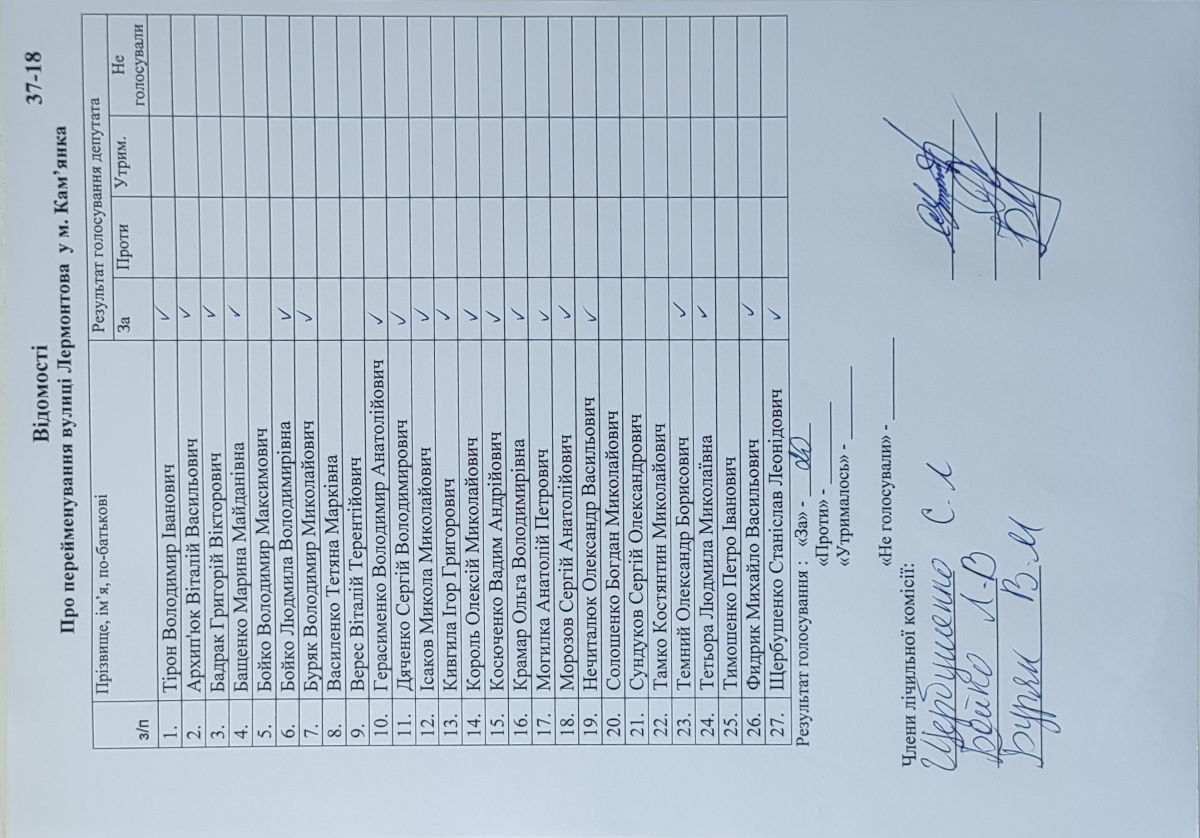 Відомості 37-18
Про перейменування вулиці Лермонтова у м. Кам’янка
з/п Прізвище, ім’я, по-батькові Результат голосування депутата
За Проти Утрим. Не голосували
1. Тірон Володимир Іванович ✓
2. Архип'юк Віталій Васильович ✓
3. Бадрак Григорій Вікторович ✓
4. Бащенко Марина Майданівна ✓
5. Бойко Володимир Максимович
6. Бойко Людмила Володимирівна ✓
7. Буряк Володимир Миколайович ✓
8. Василенко Тетяна Марківна
9. Верес Віталій Терентійович
10. Герасименко Володимир Анатолійович ✓
11. Дяченко Сергій Володимирович ✓
12. Ісаков Микола Миколайович ✓
13. Кивгила Ігор Григорович ✓
14. Король Олексій Миколайович ✓
15. Косюченко Вадим Андрійович ✓
16. Крамар Ольга Володимирівна ✓
17. Могилка Анатолій Петрович ✓
18. Морозов Сергій Анатолійович ✓
19. Нечиталюк Олександр Васильович ✓
20. Солошенко Богдан Миколайович
21. Сундуков Сергій Олександрович
22. Тамко Костянтин Миколайович
23. Темний Олександр Борисович ✓
24. Тетьора Людмила Миколаївна ✓
25. Тимошенко Петро Іванович
26. Фидрик Михайло Васильович ✓
27. Щербушенко Станіслав Леонідович ✓
Результат голосування : «За» - 20
«Проти» -
«Утрималось» -
«Не голосували» -
Члени лічильної комісії:
Щербушенко С.Л
Бойко Л.В
Буряк В.М